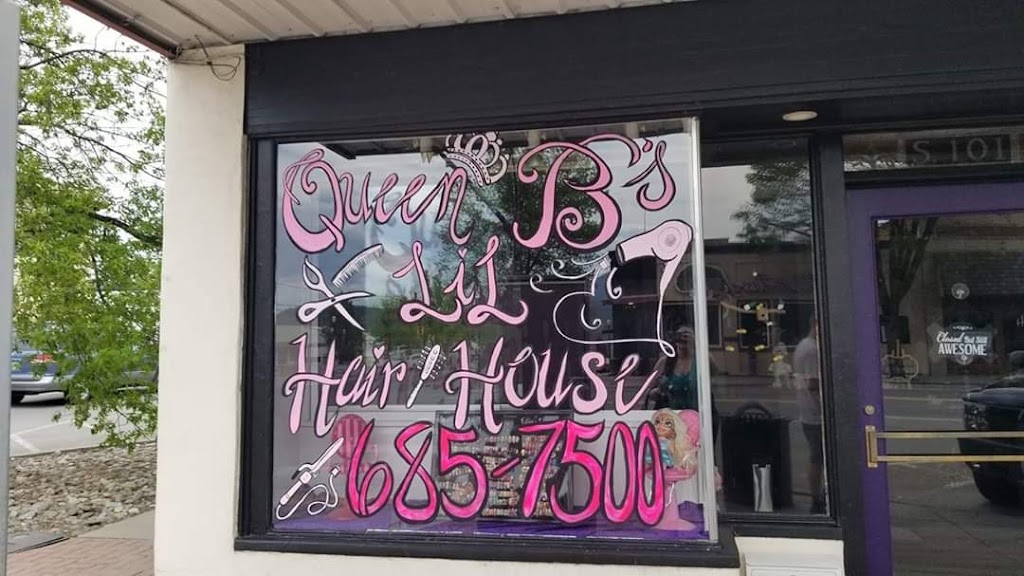 Queen B's
LiL
Hair House
685-7500
S. 101
Closed But Still
AWESOME